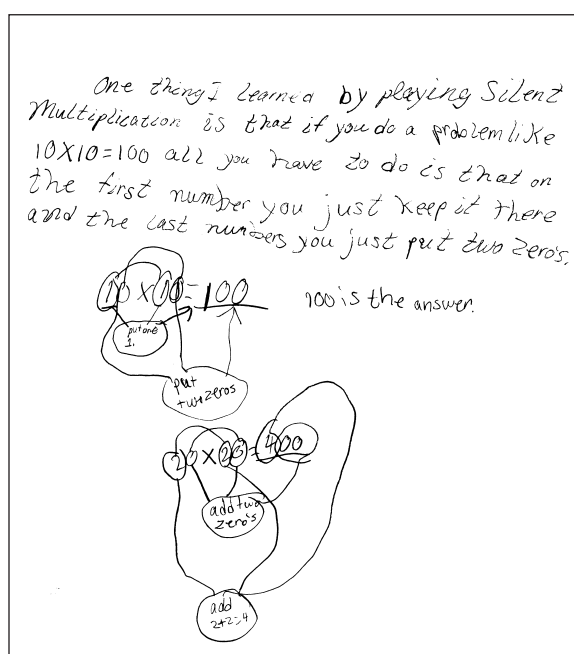 One thing I learned by playing Silent
Multiplication is that if you do a problem like
10X10=100 all you have to do is that on
the first number you just keep it there
and the last numbers you just put two zero's.
10 X 10 = 100
100 is the answer.
put one
1.
put
two zeros
20 X 20 = 400
add two
zero's
add
2+2=4